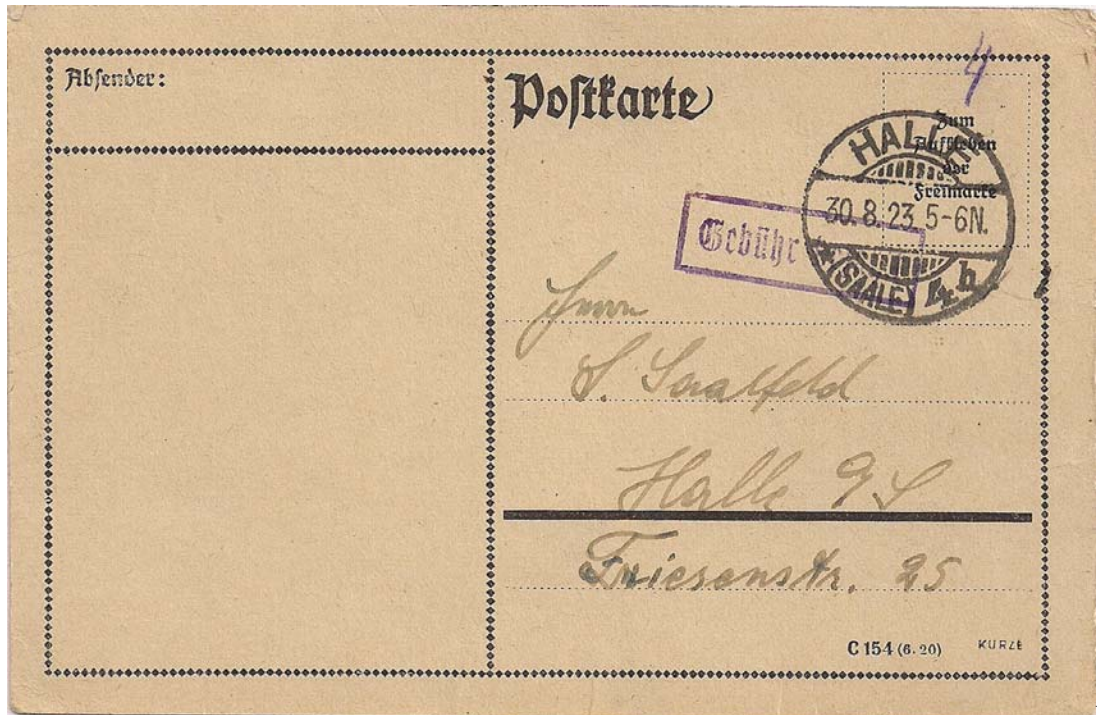 Absender:
Postkarte
4
Zum
Aufkleben
der
Freimarke
HALLE
30.8.23.5-6N.
* (SAALE) 4h
Gebühr
Herrn
S. Saalfeld
Halle a/S
Friesenstr. 25
C 154 (6. 20)
KURZE